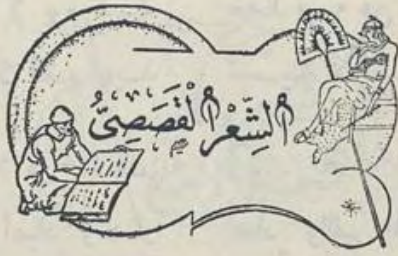 الشِّعْرُ الْقَصَصِيُّ